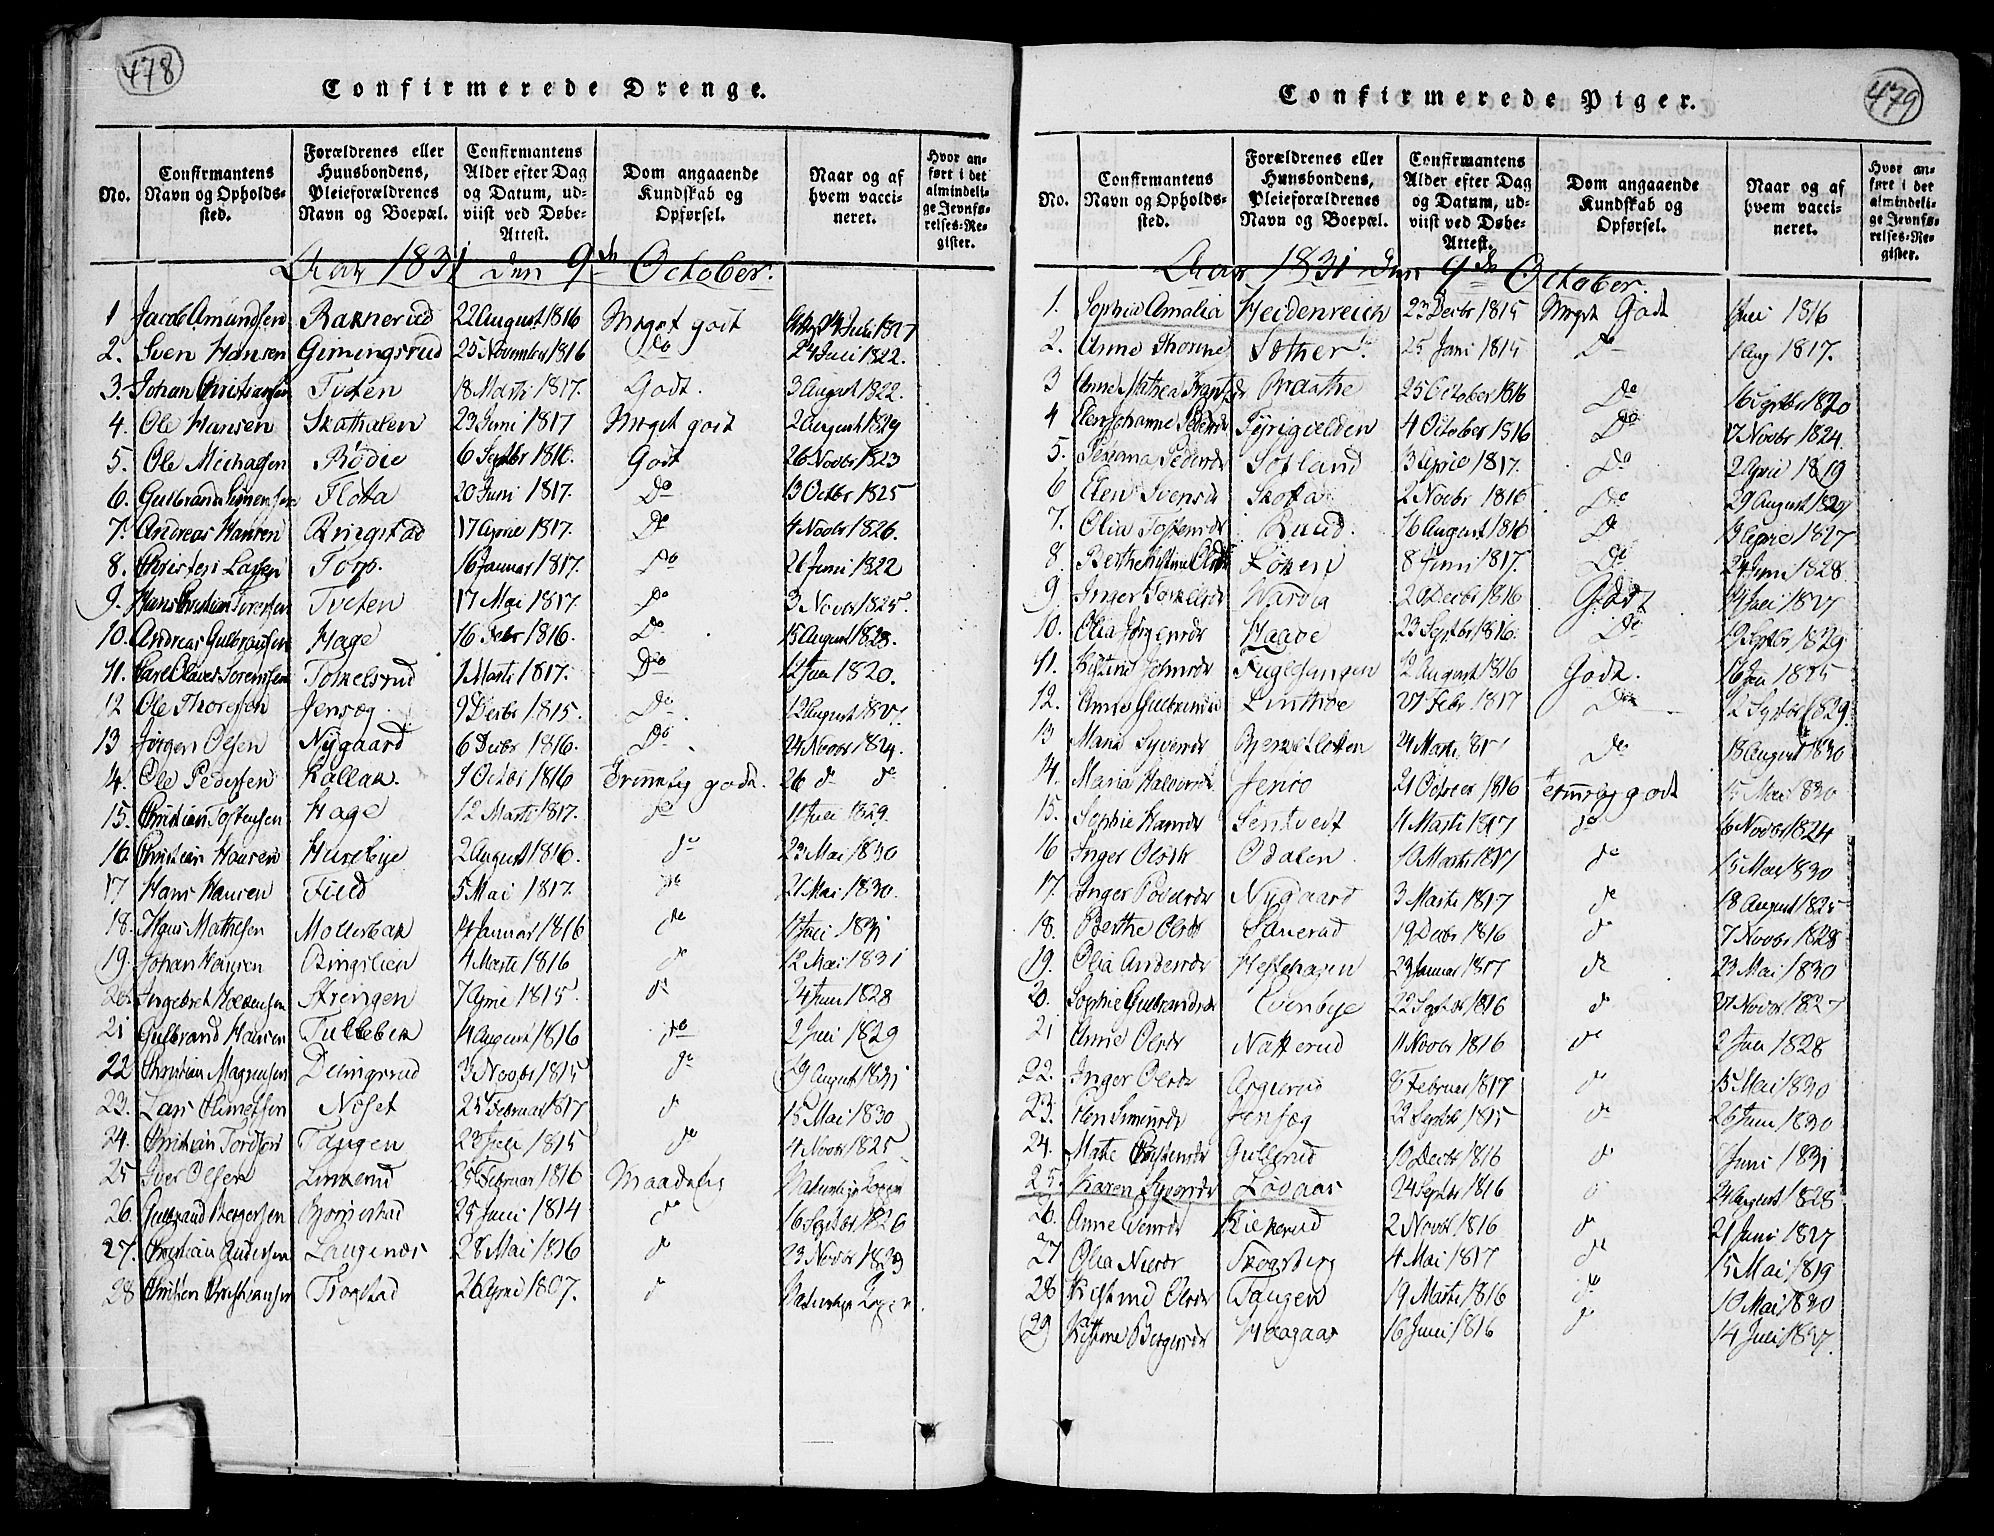 478
Confirmerede Drenge.
No.
Confirmantens Navn og Opholdssted.
Forældrenes eller Huusbondens, Pleieforældrenes Navn og Boepæl.
Confirmantens Alder efter Dag og Datum, udviist ved Døbe-Attest.
Dom angaaende Kundskab og Opførsel.
Naar og af hvem vaccineret.
Hvor anført i det almindelige Jevnførelses-Register.
Aar 1831 den 9de October.
1 Jacob Amundsen Raknerud 22 August 1816 Meget godt Juli 1817
2. Sven Hansen Gimingsrud 25 November 1816 Do 24 Juli 1822.
3. Johan Christiansen Tveten 18 Marti 1817. Godt. 3 August 1822.
4. Ole Hansen Skathalen 23 Juni 1817 Meget godt 2 August 1829
5. Ole Michaelsen Rødie 6 Septbr 1816. Godt 26 Novbr 1823
6. Gulbrand Simensen Fløta 20 Juni 1817. Do 13 Octbr 1825
7. Andreas Hansen Ringstad 17 April 1817. Do 4 Novbr 1826.
8. Christen Larsen Torp. 16 Januar 1817. Do 26 Juni 1822
9. Hans Christian Tveten 17 Mai 1817. Do 3 Novbr 1825.
10. Andreas Gulbransen Hage 16 Febr 1816. Do 15 August 1828.
11. Carl Olaves Sørensen Tokelsrud 1 Marti 1817. Do 1820.
12 Ole Thoresen Jensøg. 9 Decbr 1815. Do 12 August
13 Jørgen Olsen Nygaard 6 Decbr 1816. Do 24 Novbr 1824.
4. Ole Pedersen Kallak. 9 Octbr 1816 Temmelig godt. 26 do do
15. Christian Tostensen Hage 12 Marti 1817. do 11 Juli 1829.
16. Christian Hansen Husebye 2 August 1816. do 23 Mai 1830
17 Hans Hansen Field 5 Mai 1817. do 21 Mai 1830.
18. Hans Mathesen Mollerbak 14 Januar 1816 do Juli 1831
19. Johan Hansen Ringlien 4 Marti 1816 do 12 Mai 1831
20. Ingebret Strengen 7 April 1815. do 24 Juni 1828
21 Gulbrand Hansen Tullebek 4 August 1816 do 2 Juli 1829
22 Christian Magnusen Dæingsrud 3 Novbr 1815 do 29 August 1831
23. Lars Nøset 25 Februar 1817 do 15 Mai 1830
24. Christian Tordsen Tangen 23 Juli 1815 do 4 Novbr 1825.
25 Iver Olsen Linnerud 25 Februar 1816 Maadelig Naturlige Kopper
26. Gulbrand Bergersen Gjørgestad 25 Juni 1814 do 16 Septbr 1826
27. Christian Andersen Langenæs 28 Mai 1816 do 23 Novbr 1829
28 Christen Christiansen Trogstad 26 April 1807. do Naturlige Kopper
479
Confirmerede Piger.
No.
Confirmantens Navn og Opholdssted.
Forældrenes eller Huusbondens, Pleieforældrenes Navn og Boepæl.
Confirmantens Alder efter Dag og Datum, udviist ved Døbe-Attest.
Dom angaaende Kundskab og Opførsel.
Naar og af hvem vaccineret.
Hvor anført i det almindelige Jevnførelses-Register.
Aar 1831 den 9de October.
1. Sophia Amalia Heidenreich 23 Decbr 1815 Meget Godt Juli 1816
2. Anne Thorine Søther 25 Juni 1815 Do 1 Aug 1817.
3 Anne Mathea Braathe 25 October 1816 Do 16 Septbr 1820
4 Elen Johanne Pedersdr Fyrigielden 4 October 1816 Do 17 Novbr 1824.
5. Pedersdr Sotland 3 April 1817. Do 2 April 1819
6 Elen Svensdr Skofta 2 Novbr 1816 Do 29 August 1829
7. Olia Tostensdr Ruud. 16 August 1816 Do April 1827
8. Berthe Kistine Olsdr Løken 8 Juni 1817. Do 24 Juni 1828
9 Inger Torkelsdr Narvig 20 Decbr 1816 Godt 14 Juli 1827
10. Olia Jørgensdr Haave 23 Septbr 1816. Do 19 Septbr 1829
11. Kistine Johnsdr Fuglesangen 12 August 1816 Godt. 16
12. Anne Gulbrandsdr Linthoe 27 Febr. 1817 Do 12 Septbr 1829.
13 Maria Syversdr Bjerkesletten 24 Marti Do 18 August 1830
14. Maria Halvorsdr Jensø 21 October 1816 Temmelig godt 15 Mai 1830
15. Sophie Hansdr Sentvedt 11 Marti 1817 do 16 Novbr 1824
16 Inger Olsdr Odalen 10 Marti 1817 do 15 Mai 1830
17. Inger Pedersdr Nygaard 3 Marti 1817 do 18 August 1825
18. Berthe Olsdr Sanerud 19 Decbr 1816 do 7 Novbr 1828
19. Olia Andersdr Heftehagen 23 Januar 1817 do 23 Mai 1830
20. Sophie Gulbrandsdr Evenbye 22 Septbr 1816 do Novbr 1827
21 Anne Olsdr Natterud 11 Novbr 1816 do 2 1828
22. Inger Olsdr Asgierud 8 Februar 1817 do 15 Mai 1830
23. Elen Simensdr Jensøg 22 Septbr 1815 do 26 Juni 1830
24. Mathe Christensdr Gullerud 10 Decbr 1816 do Juni 1831
25. Karen Syversdr Lövaas 24 Septbr 1816 do 24 August 1828
26. Anne Svensdr Kiekerud 2 Novbr 1816 do 21 Juni 1827
27 Olia Nielsdr Skogsberg 4 Mai 1817 do 15 Mai 1819
28 Kistine Olsdr Tangen 19 Marti 1816 do 10 Mai 1830
29 Kistine Bergersdr Haagaas 16 Juni 1816 do 14 Juli 1827.